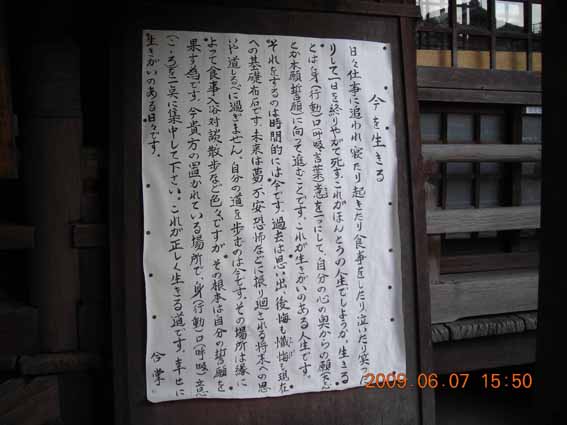 今を生きる
日々仕事に追われ寝たり起きたり食事をしたり泣いたり笑った
りして一日を終りやがて死す。これがほんとうの人生でしょうか。生きる
とは、身(行動)口(呼吸言葉)意を一つにして、自分の心の奥からの願
とか本願誓願)に向って進むことです。これが生きがいのある人生です。
それをするのは時間的には今です。過去は思い出、後悔も懺悔も現在
への基礎布石です。未来は夢不安恐怖などに振り廻される将来への思
いや道しるべに過ぎません。自分の道を歩むのは今です。その場所は縁に
よって食事入浴対談散歩など色々ですが、その根本は自分の誓願を
果す為です。今貴方の置かれている場所で、身(行動)口(呼吸)意
(こころ)を一点に集中して下さい。これが正しく生きる道です。幸せに
生きがいのある日々です。
2009.06.07 15:50